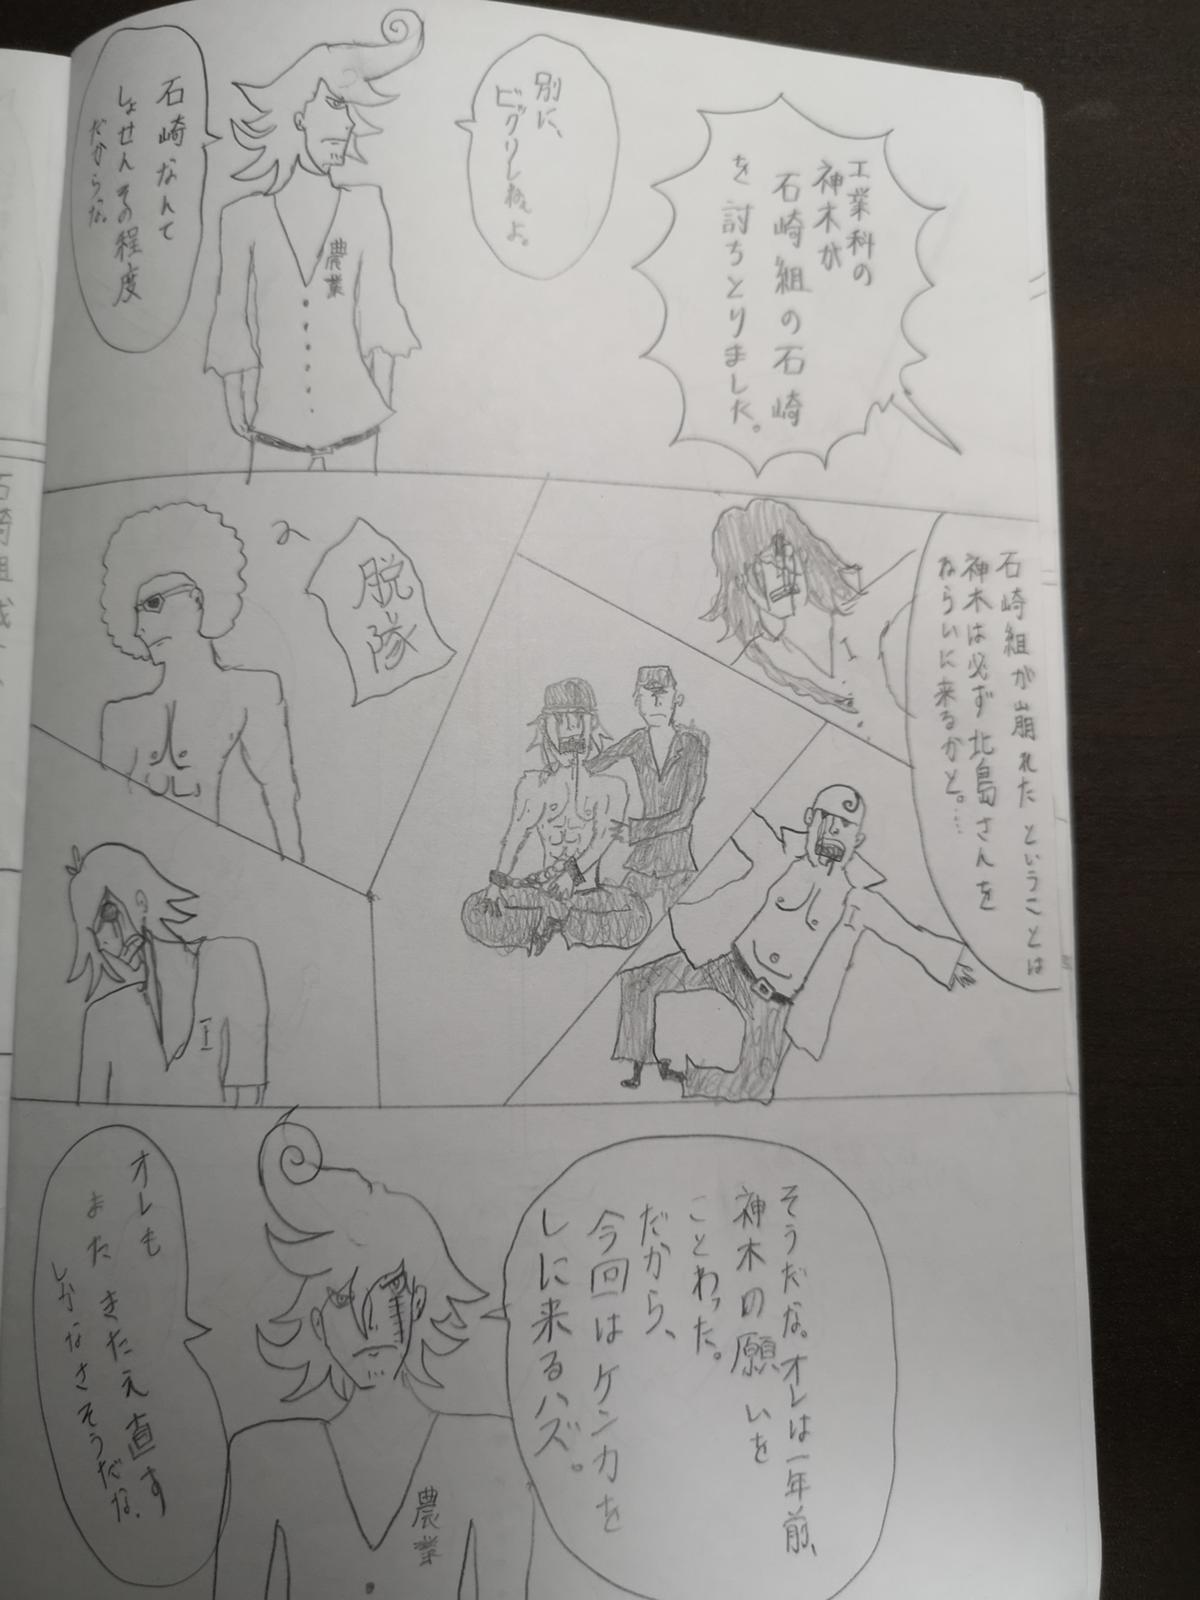 工業科の
神木が
石崎組の石崎
を討ちとりました。
別に、
ビックリしねぇよ。
農業
石崎なんて
しょせんその程度
だからな。
石崎組が崩れたということは
神木は必ず北島さんを
ねらいに来るかと。…
脱隊
そうだな。オレは一年前、
神木の願いを
ことわった。
だから、
今回はケンカを
しに来るハズ。
農業
オレも
またきたえ直す
しかなさそうだな。